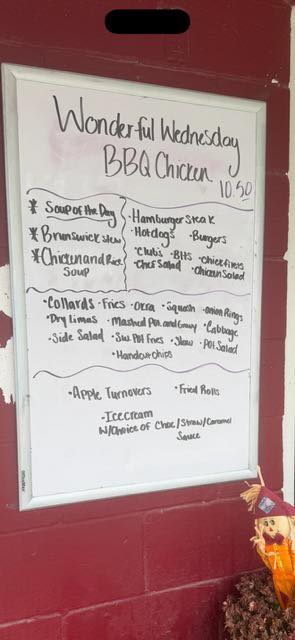 Wonderful Wednesday
BBQ Chicken
10.50
* Soup of the Day
* Brunswick Stew
* Chicken and Rice
Soup
• Hamburger steak
• Hotdogs • Burgers
• Clubs • BLTS • chicken filets
• Chef Salad • Chicken Salad
• Collards • Fries • Okra • Squash • Onion Rings
• Dry Limas • Mashed Pot. and Gravy • Cabbage
• Side Salad • Sw. Pot Fries • Slaw • Pot Salad
• Handcut chips
• Apple Turnovers • Fried Rolls
• Ice cream
W/Choice of Choc/Straw/Caramel
Sauce